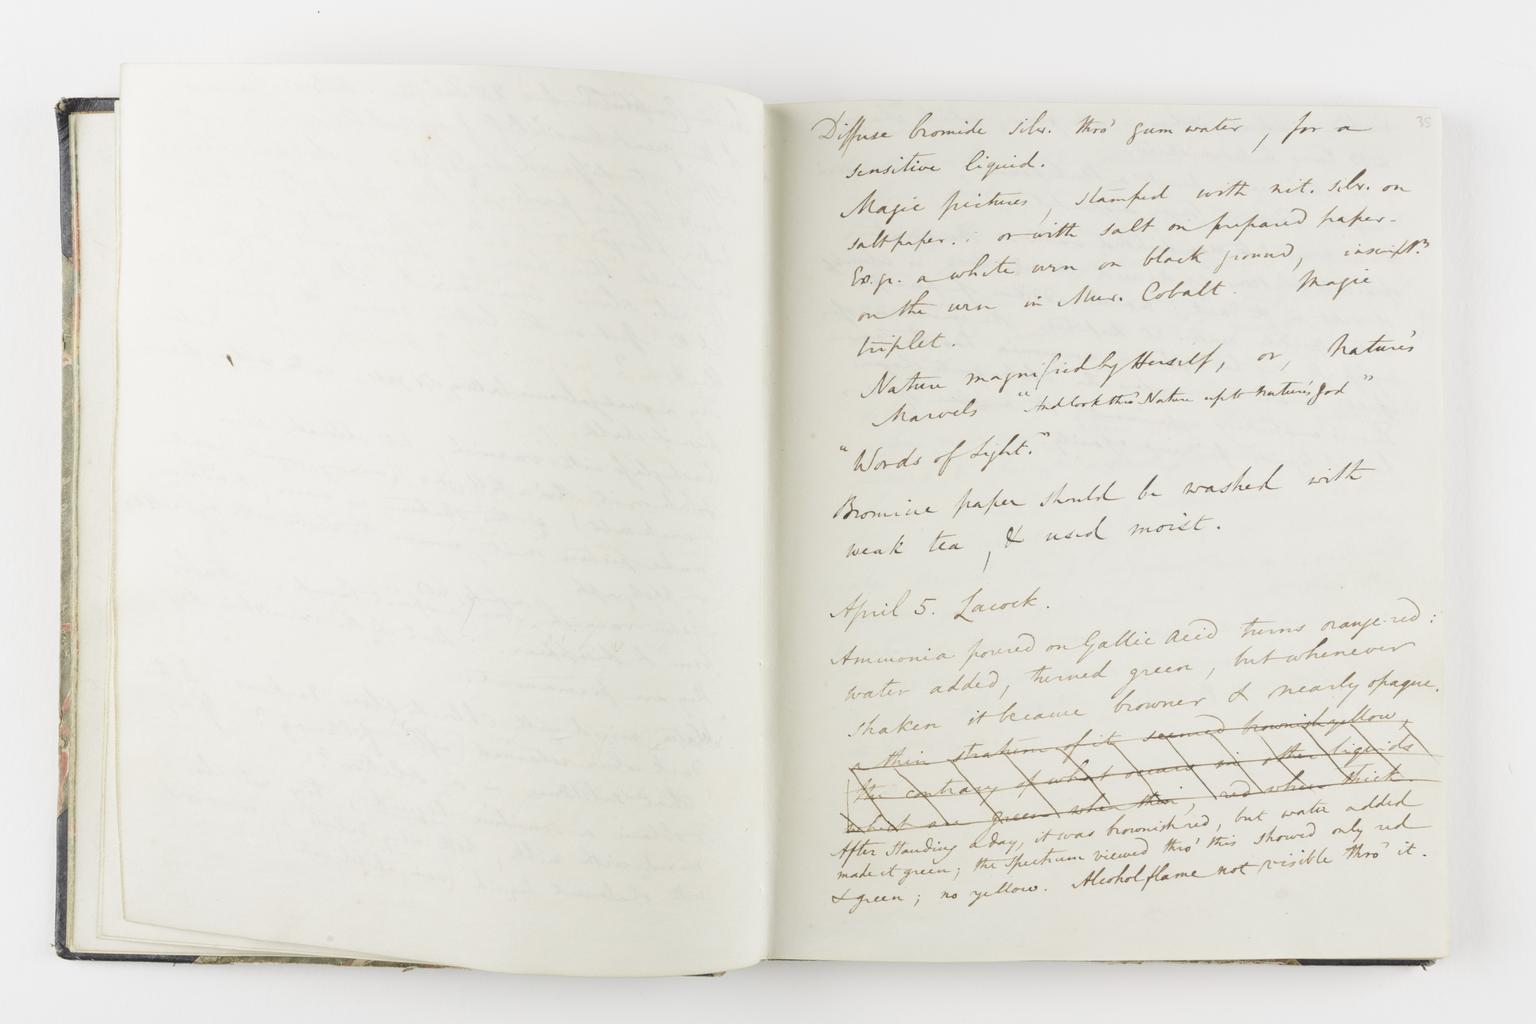 35
Diffuse bromide silv. thro' gum water, for a
sensitive liquid.
Magic pictures, stamped with nit. silv. on
salt paper.: or with salt on prepared paper-
Ex.gr. a white urn on black ground, inscript.n
on the urn in Mur. Cobalt. Magic
triplet.
Nature magnified by Herself, or, Nature's
Marvels "And look thro' Nature up to Nature's God"
"Words of Light."
Bromine paper should be washed with
weak tea, & used moist.
April 5. Lacock.
Ammonia poured on Gallic Acid turns orange-red:
water added, turned green, but whenever
shaken it became browner & nearly opaque.
a thin stratum of it seemed brownish yellow,
the contrary of what occurs in other liquids
which are green when thin, red when thick.
After standing a day, it was brownish red, but water added
made it green; the Spectrum viewed thro' this showed only red
& green; no yellow. Alcohol flame not visible thro' it.